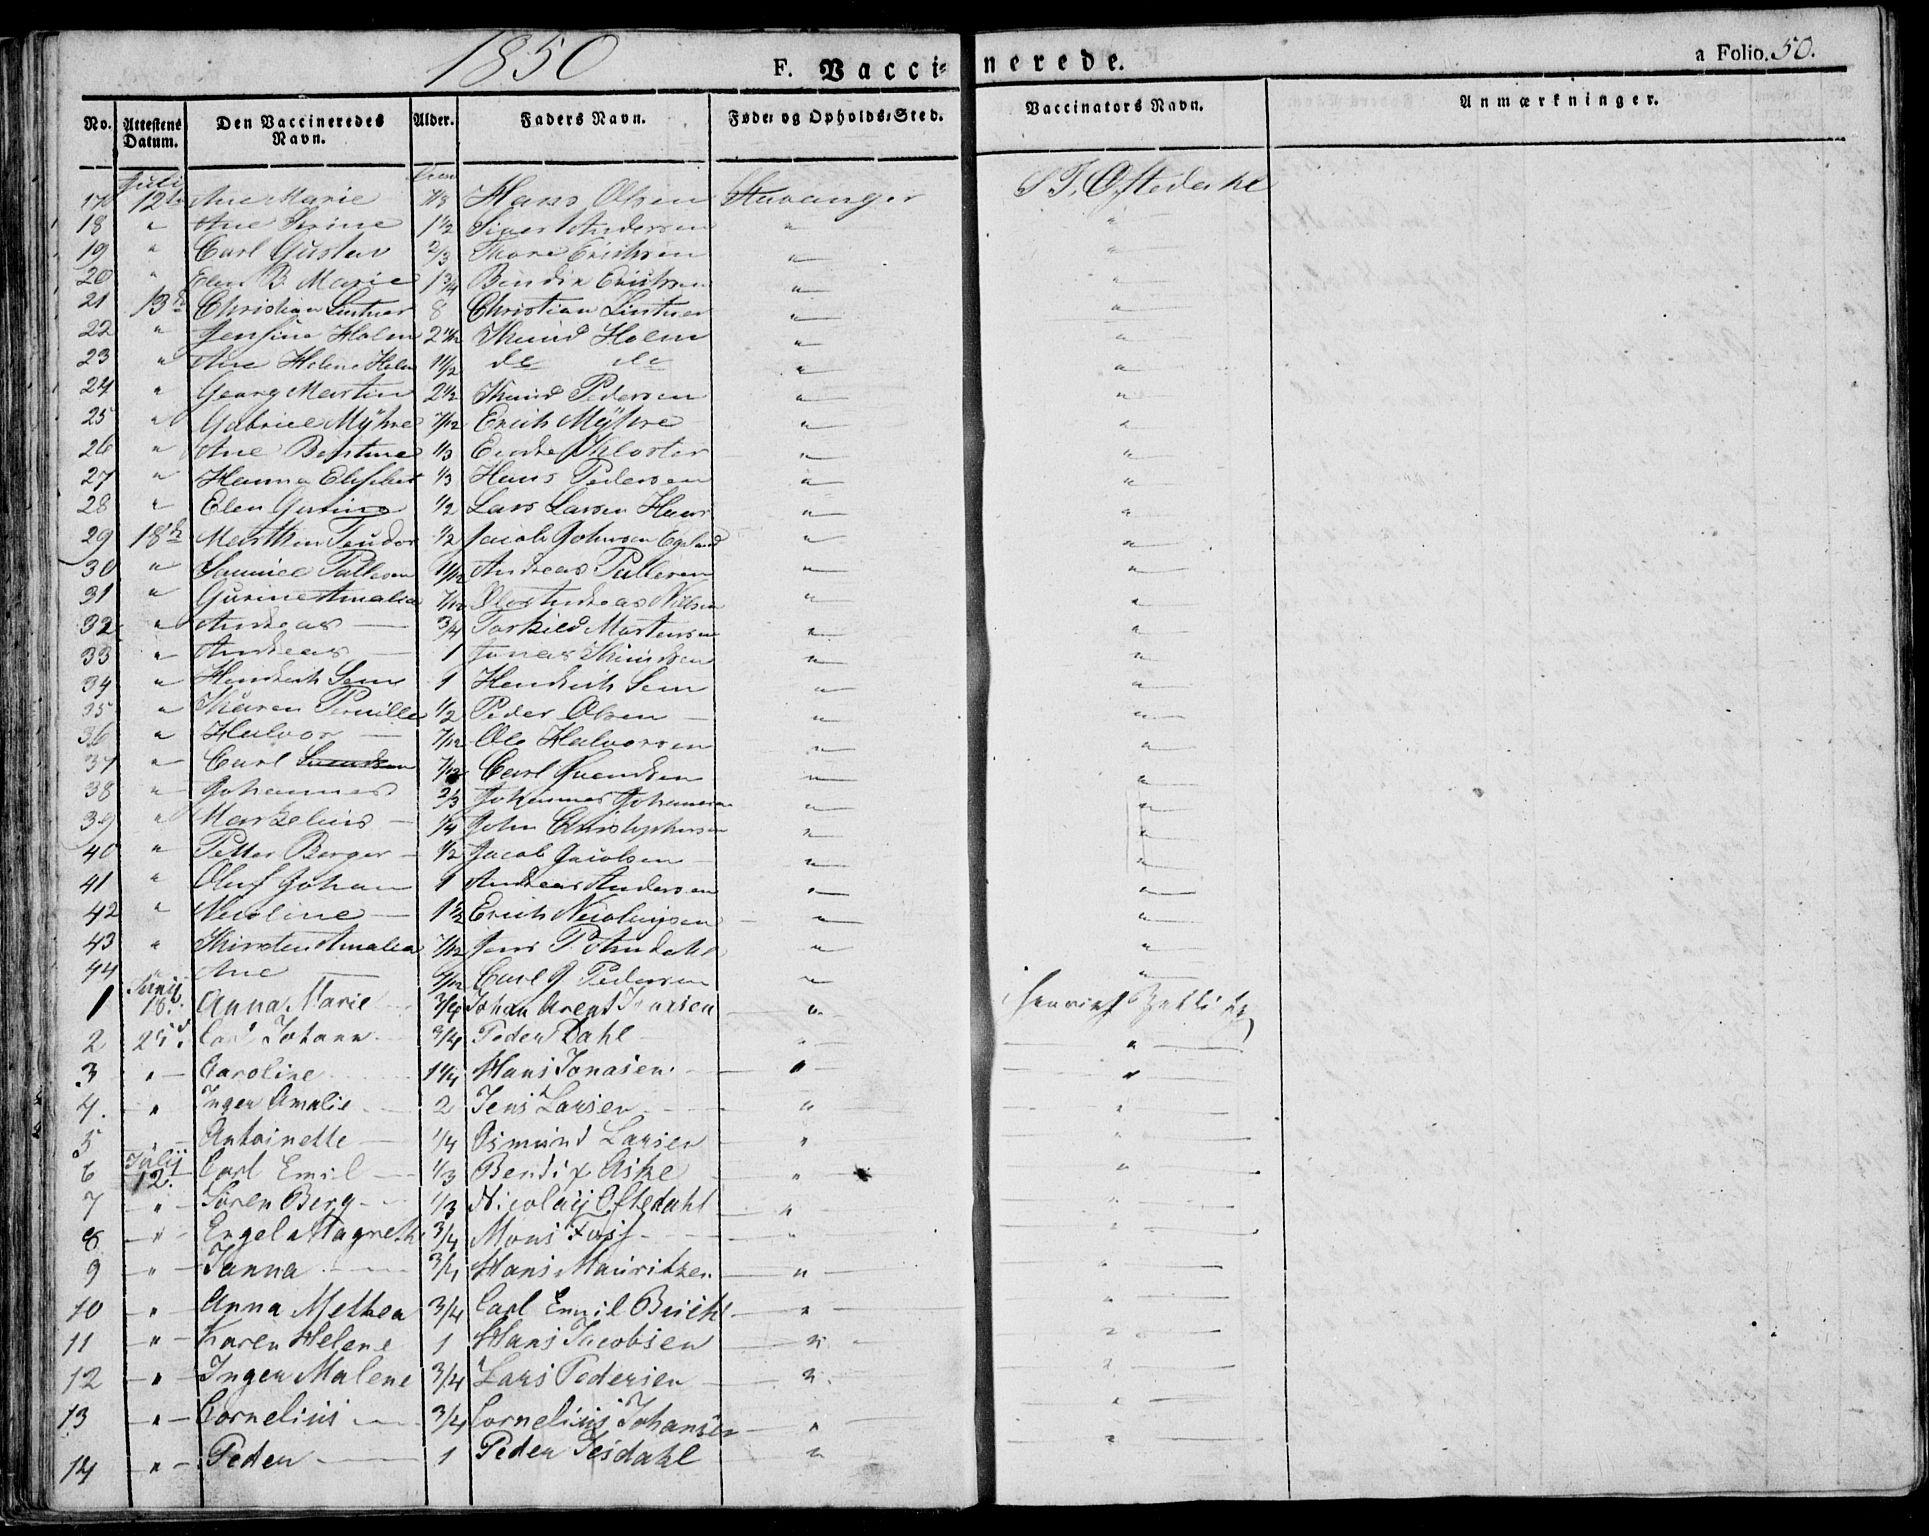 1850
F. Vaccinerede.
a Folio. 50.
No. Attestens Datum. Den Vaccineredes Navn. Alder. Faders Navn. Føde- og Opholds-Sted. Vaccinators Navn. Anmærkninger.
Juli
17 12te Ane Marie 7/8 Hans Olsen Stavanger S T. Oftedahl
18 " Ane Serine 1½ Sivert Andersen " "
19 " Carl Gustav 2/3 Thore Erichsen " "
20 " Elen B. Marie 1¾ Bendix Erichsen " "
21 13de Christian Lintner 8 Christian Lintner " "
22 " Jensine Holm 2 Knud Holm " "
23 " Ane Helene Holm 1½ do do " "
24 " Georg Martin 2½ Knud Pedersen " "
25 " Gabriel Myhre 7/12 Erich Myhre " "
26 " Ane Bertine 1/3 Endre Kloster " "
27 " Hanna Elisabet 1/3 Hans Pedersen " "
28 " Elen Gurine 1/2 Lars Larsen Haar " "
29 18de Marthin Teodor 1/2 Jacob Johnsen Egeland " "
30 " Samuel Pallesen 11/12 Andreas Pallesen " "
31 " Gurine Amalia 7/12 Ole Andreas Nilsen " "
32 " Andreas 3/4 Torkild Mortensen " "
33 " Andreas 1 Jonas Knudsen " "
34 " Hendrich Sem 1 Hendrich Sem " "
35 " Karen Pernille 1/2 Peder Olsen " "
36 " Halvor 7/12 Ole Halvorsen " "
37 " Carl Svendsen 7/12 Carl Svendsen " "
38 " Johannes 2/3 Johannes Johannesen " "
39 " Marselius 1/4 John Christophersen " "
40 " Petter Berger 1/2 Jacob Jacobsen " "
41 " Oluf Johan 1 Andreas Andersen " "
42 " Nicoline 1½ Erich Nicolaysen " "
43 " Kirsten Amalia 7/12 Jens P. " "
44 " Ane Carl J Pedersen " "
Junij
1 18. Anna Marie 3/4 Johan Arent Iversen " Henrich
2 25d. Carl Johann 3/4 Peder Dahl " "
3 " Caroline 1¼ Hans Jonasen " "
4. " Inger Amalie 2 Jens Larsen " "
5 Antoinette 1/4 Osmund Larsen " "
Julij
6 12. Carl Emil 1/3 Bendix Aske " "
7 " Søren Berg 1/3 Nicolay Oftedahl " "
8 " Engel Magrethe 3/4 Mons " "
9 " Janna 3/4 Hans Mauritzen " "
10 " Anna Methea 3/4 Carl Emil Buchl " "
11 " Karen Helene 1 Hans Jacobsen " "
12 " Inger Malene 3/4 Lars Pedersen " "
13 " Cornelius 3/4 Cornelius Johansen " "
14 " Peder 1 Peder Tesdahl "